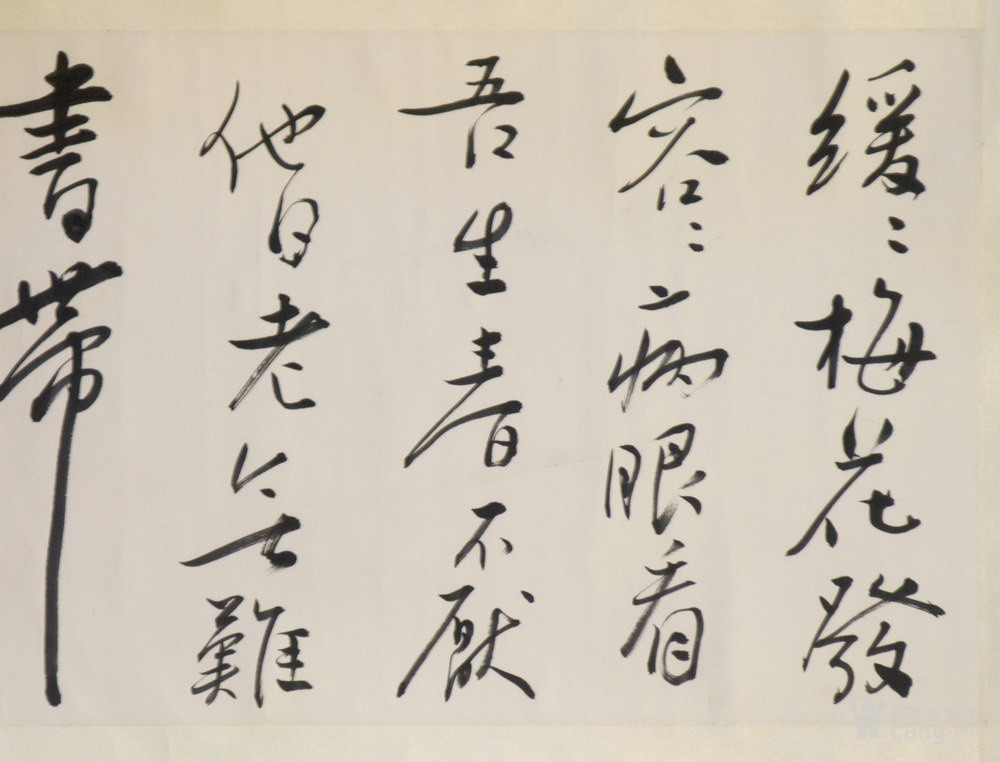 緩〻梅花發
容〻病眼看
吾生春不厭
他日老難
書帶